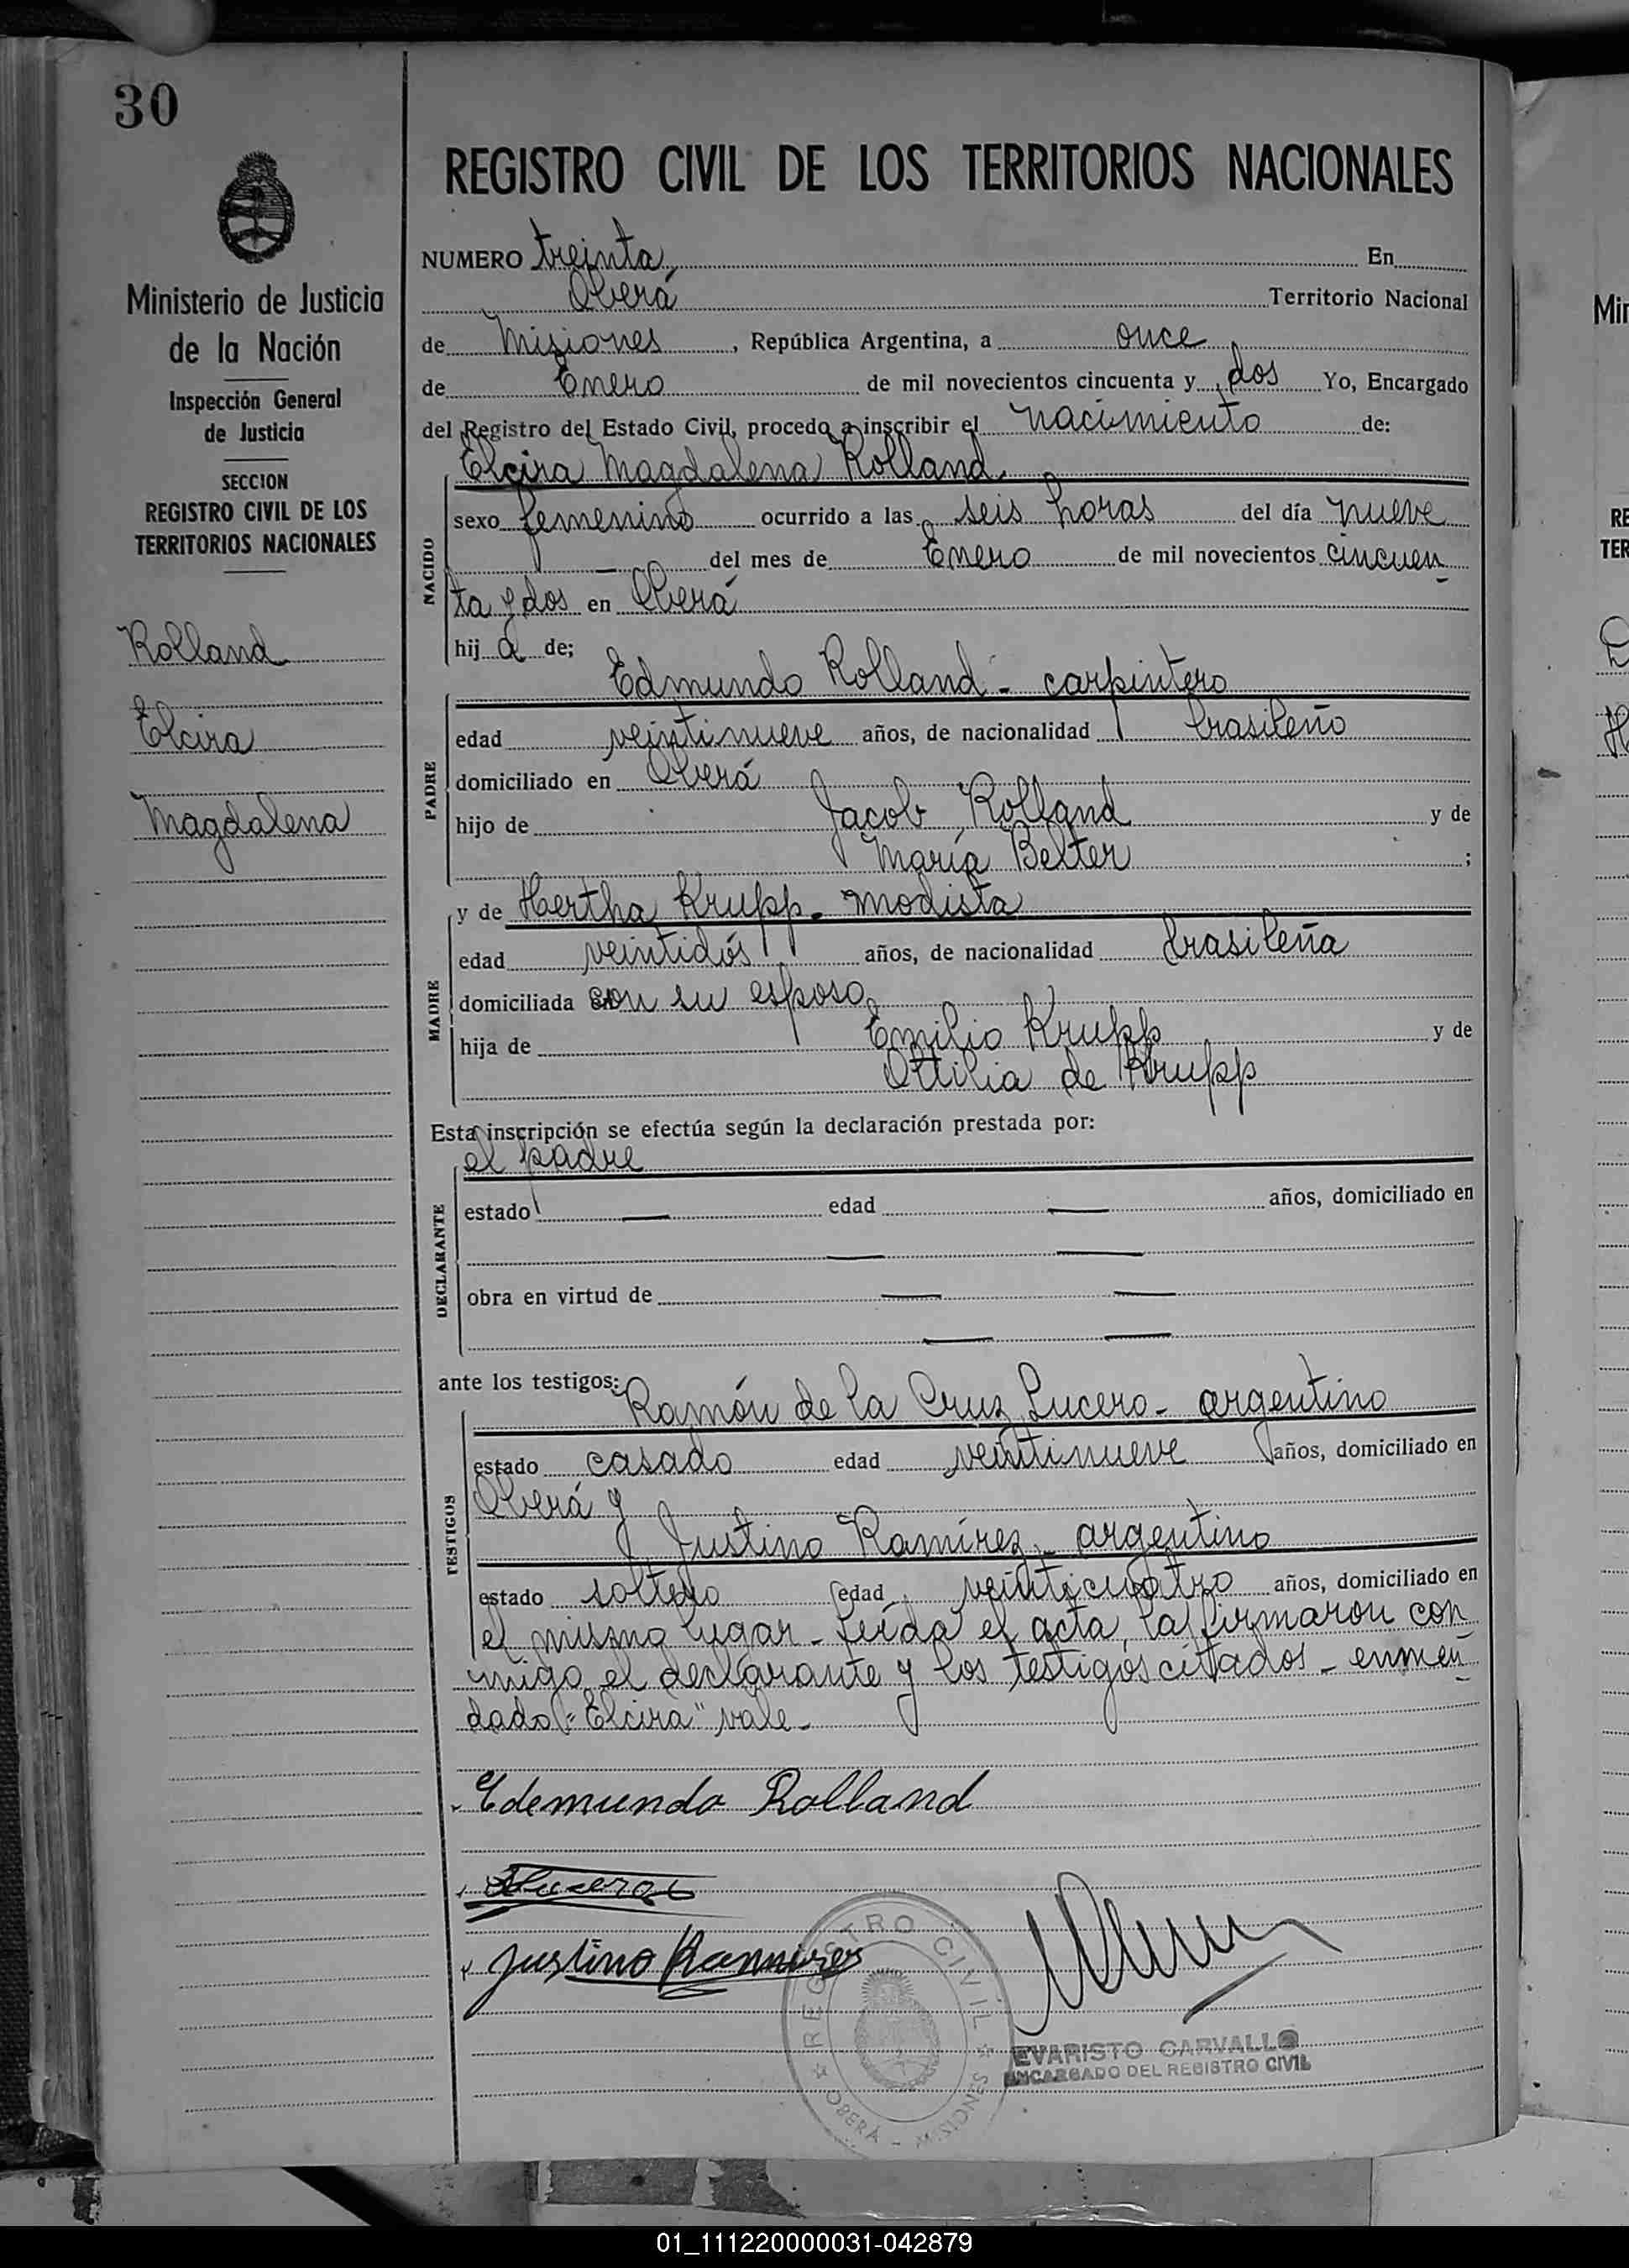 30
Ministerio de Justicia
de la Nación
Inspección General
de Justicia
SECCION
REGISTRO CIVIL DE LOS
TERRITORIOS NACIONALES
Rolland
Elcira
Magdalena
REGISTRO CIVIL DE LOS TERRITORIOS NACIONALES
NUMERO treinta, En
Oberá Territorio Nacional
de Misiones, República Argentina, a once
de Enero de mil novecientos cincuenta y dos Yo, Encargado
del Registro del Estado Civil, procedo a inscribir el nacimiento de:
Elcira Magdalena Rolland
NACIDO
sexo femenino ocurrido a las seis horas del día nueve
— del mes de Enero de mil novecientos cincuen
ta y dos en Oberá
hij a de;
PADRE
Edmundo Rolland - carpintero
edad veintinueve años, de nacionalidad brasileño
domiciliado en Oberá
hijo de Jacob Rolland y de
María Belter ;
MADRE
y de Hertha Krupp - modista
edad veintidós años, de nacionalidad brasileña
domiciliada con su esposo
hija de Emilio Krupp y de
Ottilia de Krupp
Esta inscripción se efectúa según la declaración prestada por:
DECLARANTE
el padre
estado — edad — años, domiciliado en
— —
obra en virtud de — —
— —
ante los testigos:
TESTIGOS
Ramón de la Cruz Lucero - argentino
estado casado edad veintinueve años, domiciliado en
Oberá y
Justino Ramírez - argentino
estado soltero edad veinticuatro años, domiciliado en
el mismo lugar - Leída el acta, la firmaron con
migo el declarante y los testigos citados - enmen
dado: "Elcira" vale -
Edemundo Rolland
Justino Ramires
REGISTRO CIVIL
OBERÁ - MISIONES
EVARISTO CARVALLO
ENCARGADO DEL REGISTRO CIVIL
Min
RE
TER
01_111220000031-042879